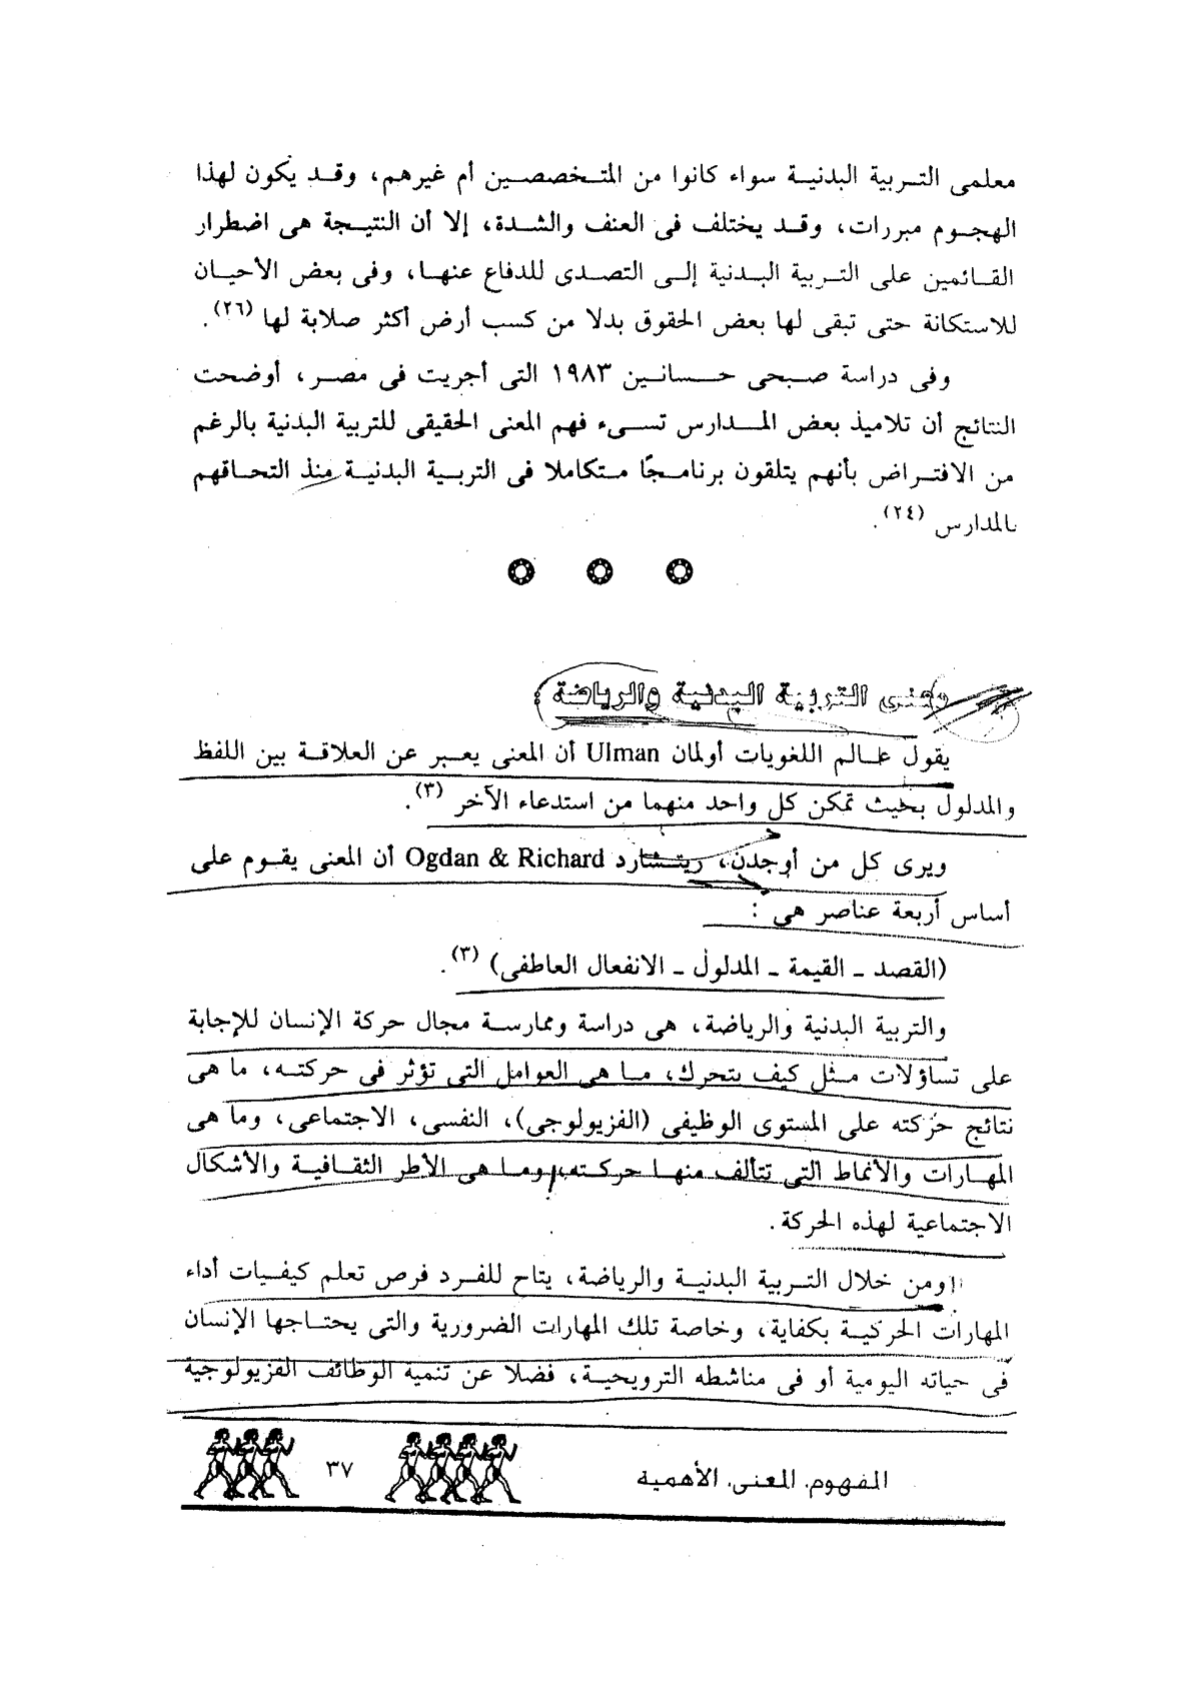 معلمى التربية البدنية سواء كانوا من المتخصصين أم غيرهم، وقد يكون لهذا
الهجوم مبررات، وقد يختلف فى العنف والشدة، إلا أن النتيجة هى اضطرار
القائمين على التربية البدنية إلى التصدى للدفاع عنها، وفى بعض الأحيان
للاستكانة حتى تبقى لها بعض الحقوق بدلا من كسب أرض أكثر صلابة لها (٢٦).
وفى دراسة صبحى حسانين ١٩٨٣ التى أجريت فى مصر، أوضحت
النتائج أن تلاميذ بعض المدارس تسىء فهم المعنى الحقيقى للتربية البدنية بالرغم
من الافتراض بأنهم يتلقون برنامجًا متكاملا فى التربية البدنية منذ التحاقهم
بالمدارس (٢٤).
معنى التربية البدنية والرياضة :
يقول عالم اللغويات أولمان Ulman أن المعنى يعبر عن العلاقة بين اللفظ
والمدلول بحيث تمكن كل واحد منهما من استدعاء الآخر (٣).
ويرى كل من أوجدن، ريتشارد Ogdan & Richard أن المعنى يقوم على
أساس أربعة عناصر هى :
(القصد ـ القيمة ـ المدلول ـ الانفعال العاطفى) (٣).
والتربية البدنية والرياضة، هى دراسة وممارسة مجال حركة الإنسان للإجابة
على تساؤلات مثل كيف يتحرك، ما هى العوامل التى تؤثر فى حركته، ما هى
نتائج حركته على المستوى الوظيفى (الفزيولوجى)، النفسى، الاجتماعى، وما هى
المهارات والأنماط التى تتألف منها حركته، وما هى الأطر الثقافية والأشكال
الاجتماعية لهذه الحركة.
ومن خلال التربية البدنية والرياضة، يتاح للفرد فرص تعلم كيفيات أداء
المهارات الحركية بكفاية، وخاصة تلك المهارات الضرورية والتى يحتاجها الإنسان
فى حياته اليومية أو فى مناشطه الترويحية، فضلا عن تنمية الوظائف الفزيولوجية
المفهوم. المعنى. الأهمية
٣٧